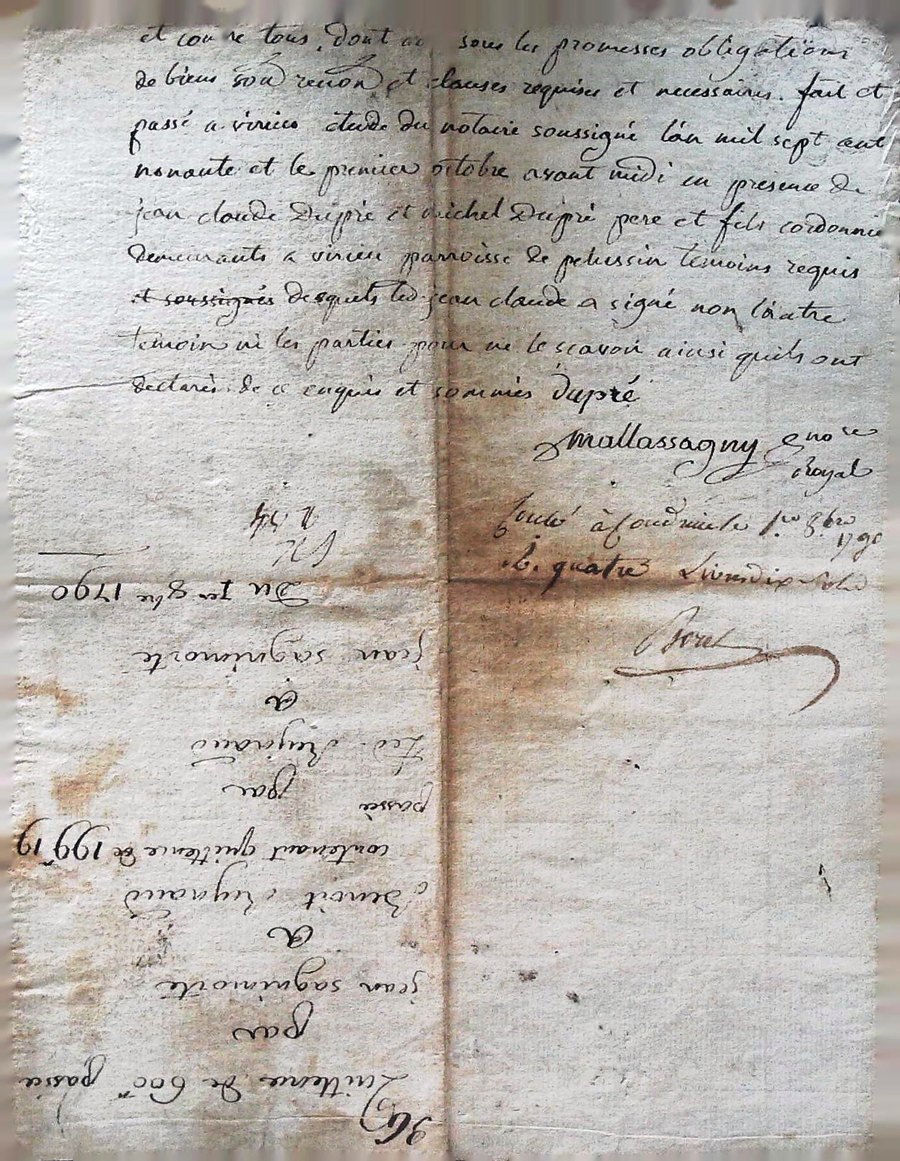 et contre tous, dont acte sous les promesses obligations
de biens son renon et clauses requises et necessaires. fait et
passé a virieu étude du notaire soussigné l'an mil sept cent
nonante et le premier octobre avant midi en presence de
jean claude Dupré et michel Dupré pere et fils cordonnie
demeurants a virieu parroisse de pelussin temoins requis
et soussignés desquels led. jean claude a signé non l'autre
temoin ni les parties pour ne le scavoir ainsi quils ont
declarés de ce enquis et sommés Dupré
Mallassagny no re
Royal
à Condrieu le 1er 8bre
1790
quatre Livres dix sols
Boret
36
Quittence de 600 passée
par
jean sagnimorte
a
Benoit Reynaud
contenant quittence de 199 19
passée
par
Led. Reynaud
a
jean sagnimorte
Du 1er 8bre 1790